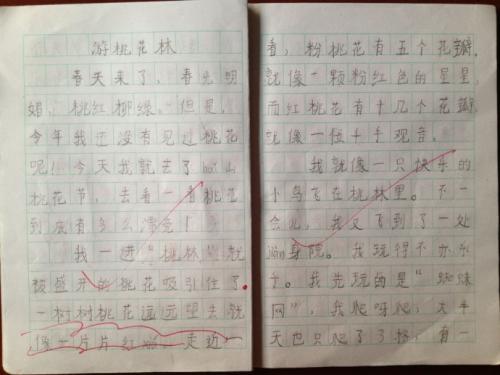 游桃花林
春天来了，春光明
媚，桃红柳绿。但是，
今年我还没有见过桃花
呢！今天我就去了 山
桃花节，去看一看桃花
到底有多么漂亮！
我一进“桃林”就
被盛开的桃花吸引住了。
一树树桃花远远望去就
像一片片红 ，走近一
看，粉桃花有五个花瓣，
就像一颗粉红色的星星，
而红桃花有十几个花瓣，
就像一位千手观音。
我就像一只快乐的
小鸟飞在桃林里。不一
会儿，我又飞到了一处
游 院。我玩得不亦乐
乎。我先玩的是“蜘蛛
网”，我爬呀爬，大半
天也只爬了3格，有一